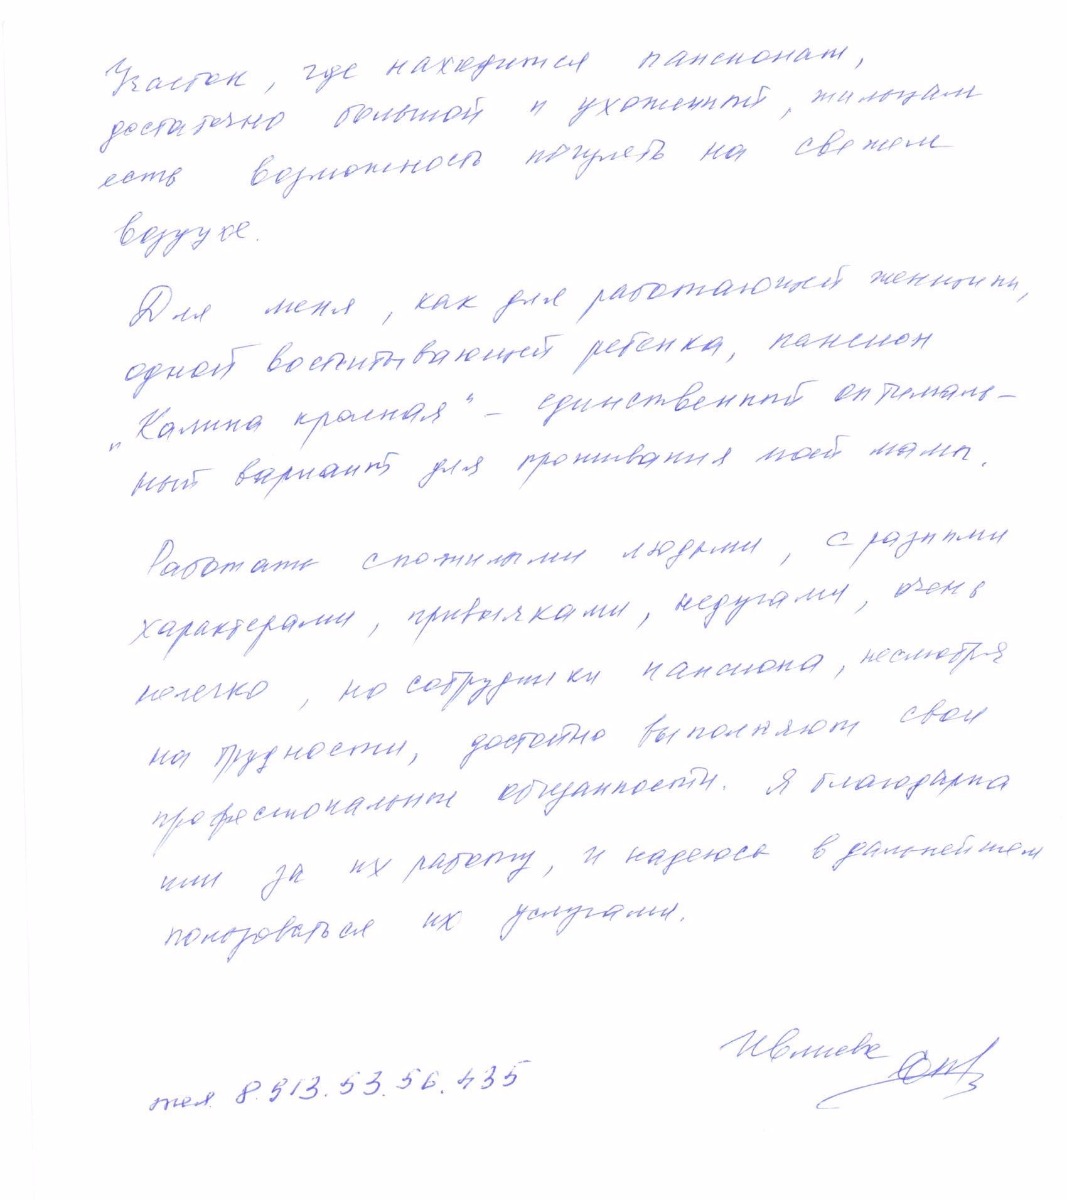 Участок, где находится пансионат,
достаточно большой и ухоженный, жильцам
есть возможность погулять на свежем
воздухе.
Для меня, как для работающей женщины,
одной воспитывающей ребенка, пансион
„Калина красная" – единственный оптималь-
ный вариант для проживания моей мамы.
Работать с пожилыми людьми, с разными
характерами, привычками, недугами, очень
нелегко, но сотрудники пансиона, несмотря
на трудности, достойно выполняют свои
профессиональные обязанности. Я благодарна
им за их работу, и надеюсь в дальнейшем
пользоваться их услугами.
Ивлиева
тел. 8.913.53.56.435